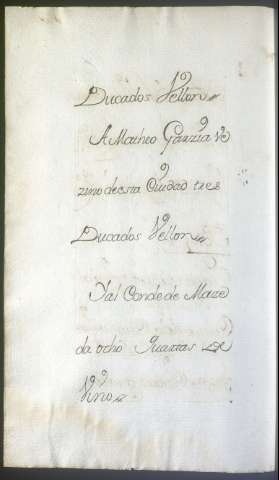 Ducados Vellon
A Matheo Garzia Ve
zino de esta Ciudad tres
Ducados Vellon
Y al Conde de Maze
da ocho Quartas de
Vino